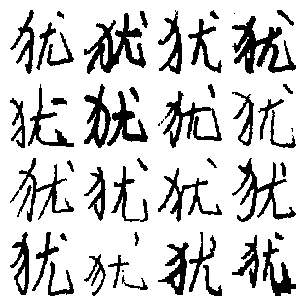 犹犹犹犹
犹犹犹犹
犹犹犹犹
犹犹犹犹